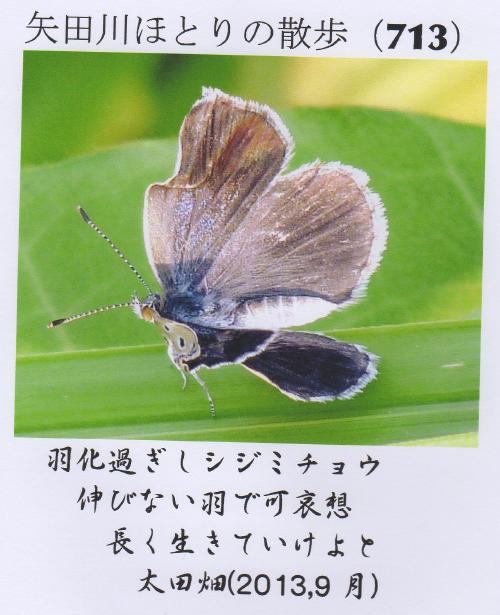 矢田川ほとりの散歩（713）
羽化過ぎしシジミチョウ
伸びない羽で可哀想
長く生きていけよと
太田畑(2013,9月)